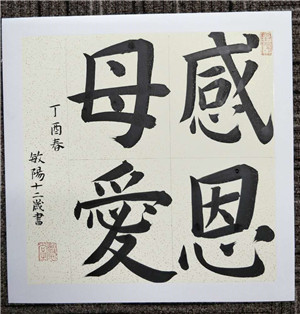 感恩
母愛
丁酉春
敏陽十二歲書